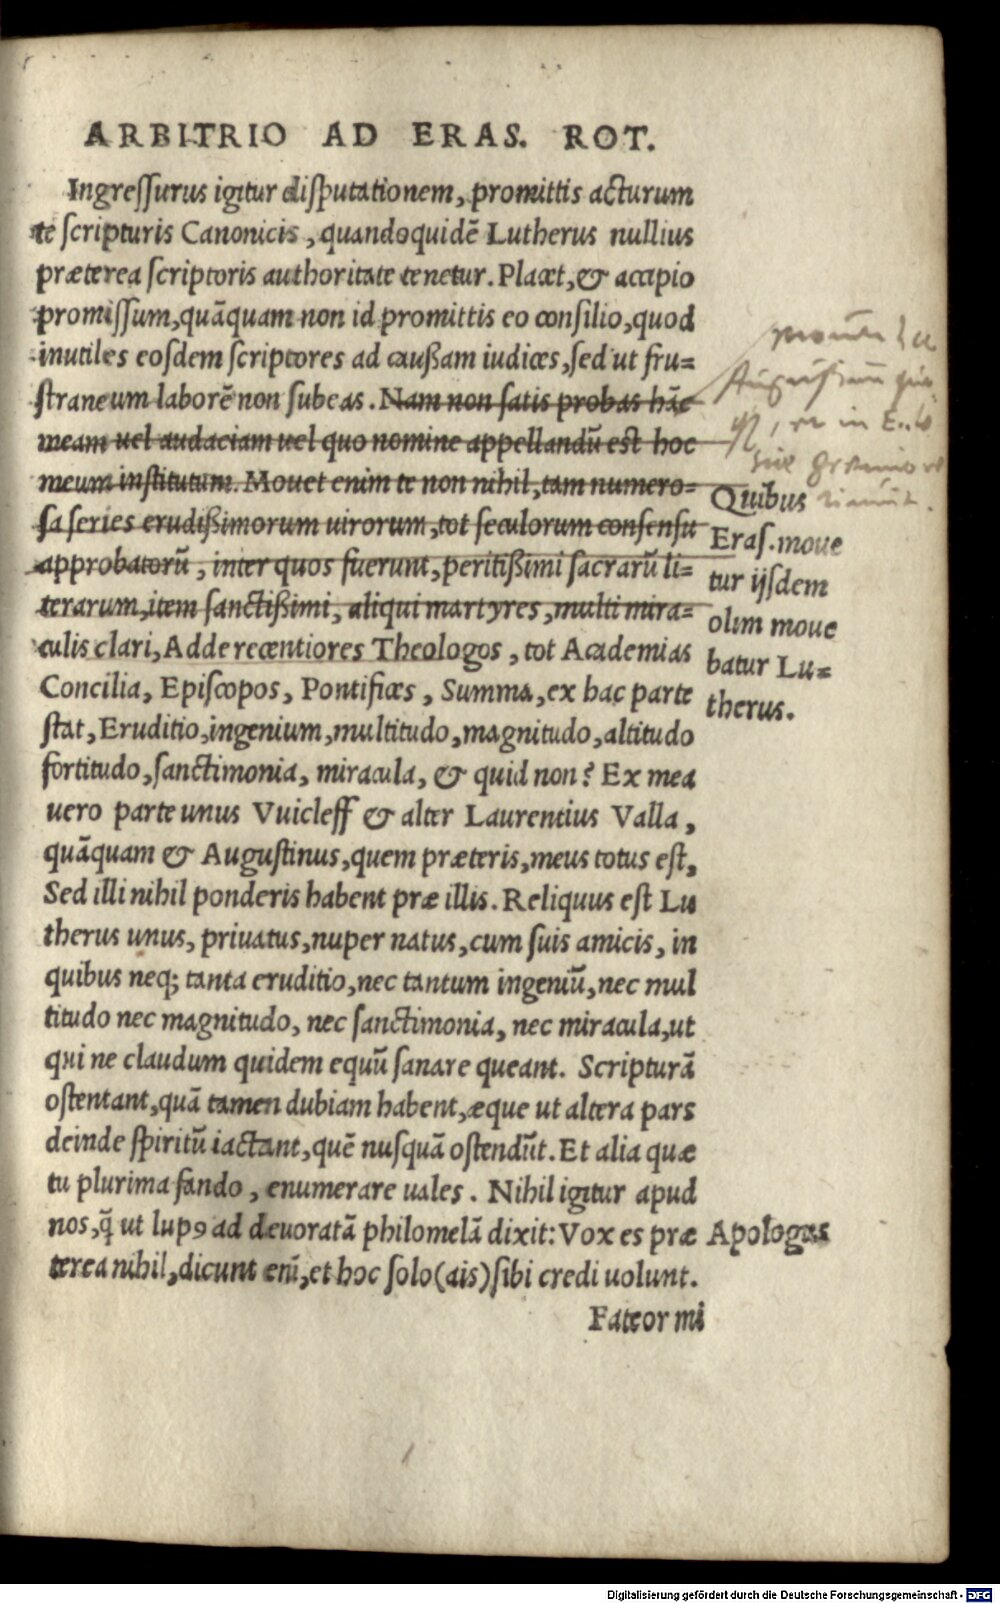 ARBITRIO AD ERAS. ROT.
Ingreſſurus igitur diſputationem, promittis acturum
te ſcripturis Canonicis, quandoquidē Lutherus nullius
præterea ſcriptoris authoritate tenetur. Placet, & accipio
promiſſum, quāquam non id promittis eo conſilio, quod
inutiles eoſdem ſcriptores ad cauſſam iudices, ſed ut fru=
ſtraneum laborē non ſubeas. Nam non ſatis probas hāc
meam uel audaciam uel quo nomine appellandū eſt hoc
meum inſtitutum. Mouet enim te non nihil, tam numero=
ſa ſeries erudißimorum uirorum, tot ſeculorum conſenſu
approbatorū, inter quos fuerunt, peritißimi ſacrarū li=
terarum, item ſanctißimi, aliqui martyres, multi mira=
culis clari, Adde recentiores Theologos, tot Academias
Concilia, Epiſcopos, Pontifices, Summa, ex hac parte
ſtat, Eruditio, ingenium, multitudo, magnitudo, altitudo
fortitudo, ſanctimonia, miracula, & quid non? Ex mea
uero parte unus Vuicleff & alter Laurentius Valla,
quāquam & Auguſtinus, quem præteris, meus totus eſt,
Sed illi nihil ponderis habent præ illis. Reliquus eſt Lu
therus unus, priuatus, nuper natus, cum ſuis amicis, in
quibus neq; tanta eruditio, nec tantum ingeniū, nec mul
titudo nec magnitudo, nec ſanctimonia, nec miracula, ut
qui ne claudum quidem equū ſanare queant. Scripturā
oſtentant, quā tamen dubiam habent, æque ut altera pars
deinde ſpiritū iactant, quē nuſquā oſtendūt. Et alia quæ
tu plurima fando, enumerare uales. Nihil igitur apud
nos, q̄ ut lupꝰ ad deuoratā philomelā dixit: Vox es præ
terea nihil, dicunt enī, et hoc ſolo (ais) ſibi credi uolunt.
Fateor mi
Quibus
Eraſ. moue
tur ijſdem
olim moue
batur Lu=
therus.
Apologus
Digitalisierung gefördert durch die Deutsche Forschungsgemeinschaft - DFG